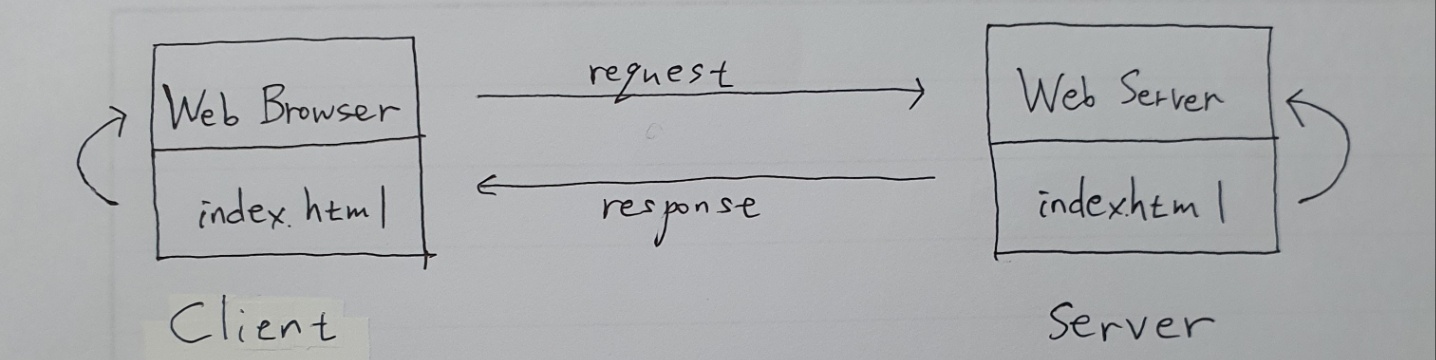 Web Browser
index.html
Client
request
response
Web Server
index.html
Server